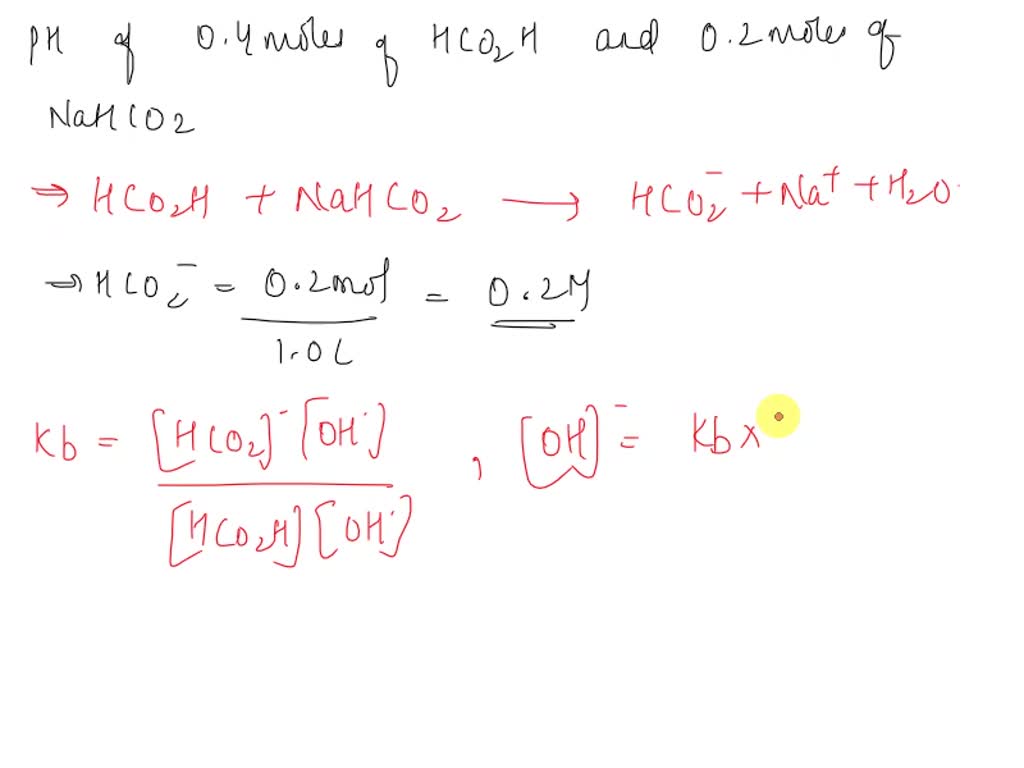 PH of 0.4 moles of HCO₂H and 0.2 moles of
NaHCO2
⇒ HCO₂H + NaHCO₂ → HCO₂⁻ + Na⁺ + H₂O.
⇒ HCO₂⁻ = 0.2mol / 1.0L = 0.2M
Kb = [HCO₂]⁻[OH⁻] / [HCO₂H][OH⁻] , [OH]⁻ = Kb x